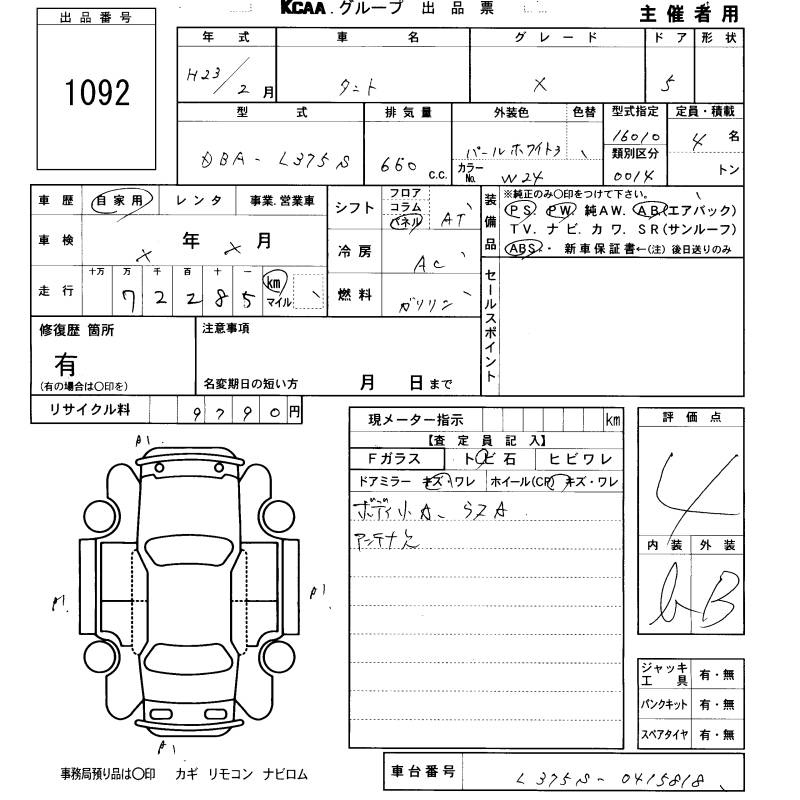 KCAA.グループ 出品票
主催者用
出品番号
1092
年式 車名 グレード ドア 形状
H23/2月 タント X 5
型式 排気量 外装色 色替 型式指定 定員・積載
DBA-L375S 660 C.C. パールホワイト3 16010 4名
カラーNo. W24 類別区分 0014 トン
車歴 自家用 レンタ 事業.営業車
車検 X年X月
走行 十万 万 千 百 十 一 km マイル
72285
シフト フロア コラム パネル AT
冷房 AC
燃料 ガソリン
装備品 ※純正のみ〇印をつけて下さい。
PS. PW. 純AW. AB(エアバック)
TV. ナビ. カワ. SR(サンルーフ)
ABS.・新車保証書←(注)後日送りのみ
セールスポイント
修復歴 箇所
有
(有の場合は〇印を)
注意事項
名変期日の短い方 月 日まで
リサイクル料 9790円
現メーター指示 km
【査定員記入】
Fガラス トビ石 ヒビワレ
ドアミラー キズ・ワレ ホイール(CP) キズ・ワレ
ボディ小A、ラスA
アンテナ欠
評価点
4
内装 外装
b B
A1.
A1.
A1.
A1.
ジャッキ工具 有・無
パンクキット 有・無
スペアタイヤ 有・無
事務局預り品は〇印 カギ リモコン ナビロム
車台番号 L375S-0415818